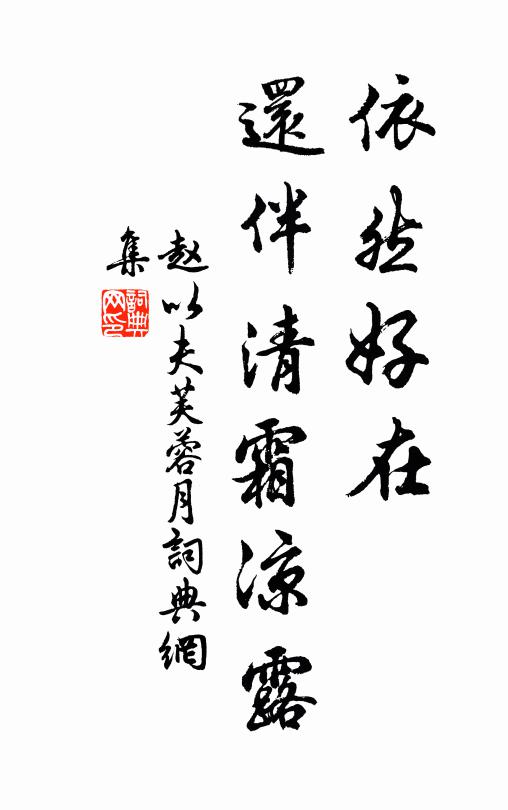 依然好在
還伴清霜涼露
赵以夫芙蓉月詞典網
集
詞典网印